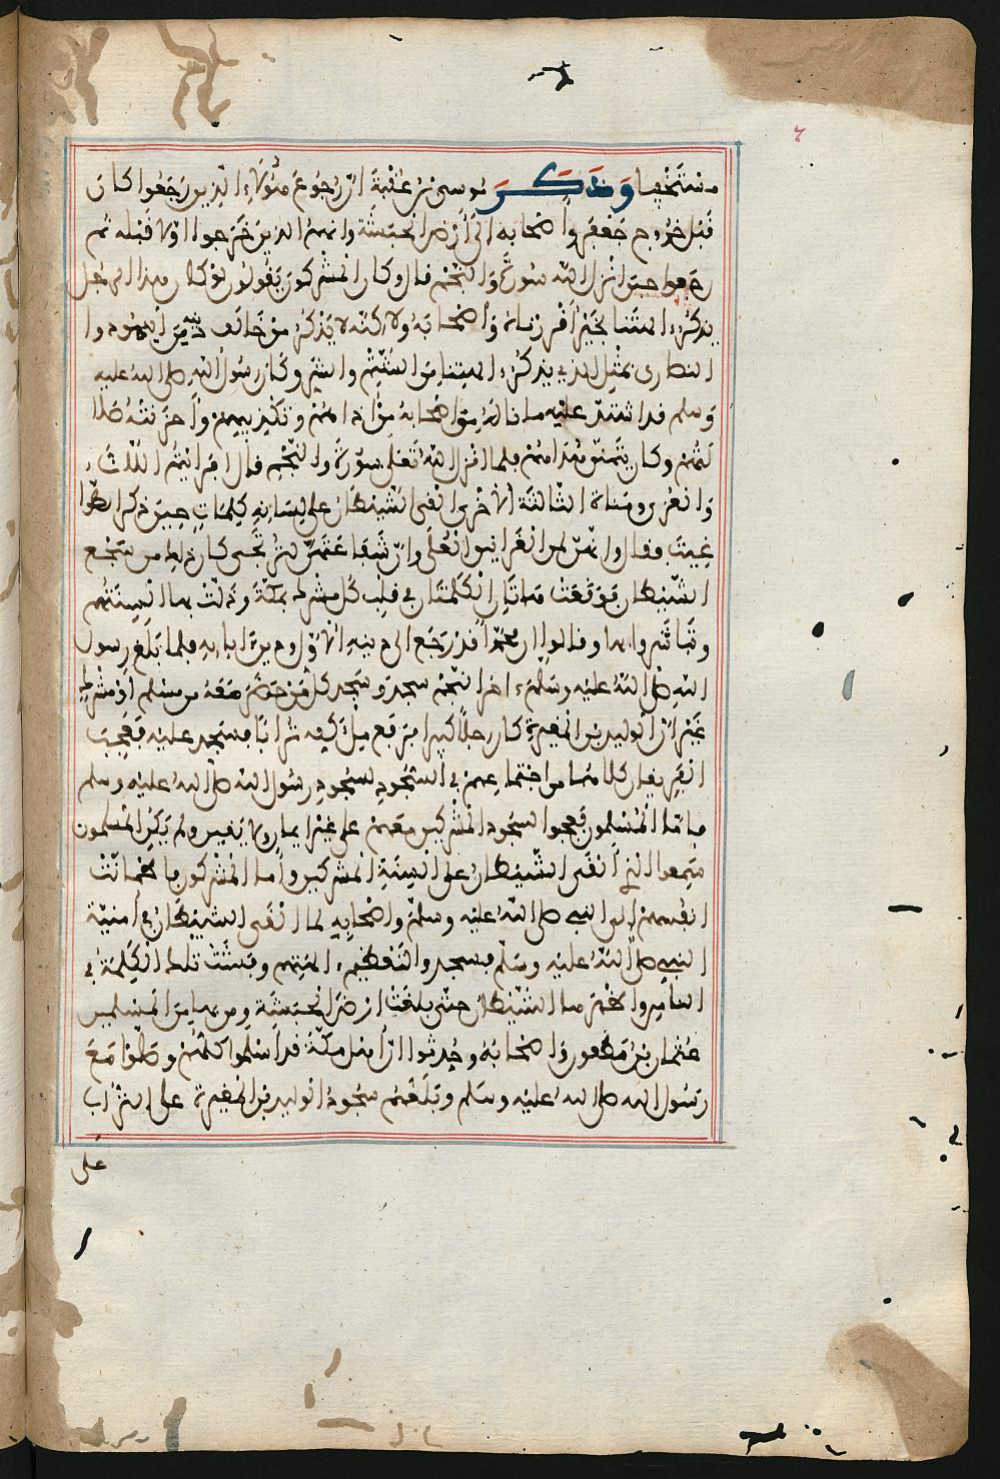 مستخفيا وقد ذكر موسى بن عقبة ان رجوع هؤلاء الذين رجعوا كان
قبل خروج جعفر واصحابه الى ارض الحبشة وانهم الذين خرجوا اولا قبله ثم
رجعوا حين انزل الله سورة والنجم قال وكان المشركون يقولون لو كان هذا الرجل
يذكر الهتنا بخير اقررناه واصحابه ولكنه لا يذكر من خالف دينه من اليهود وا
النصارى بمثل الذي يذكر الهتنا من الشتم والشر وكان رسول الله صلى الله عليه
وسلم قد اشتد عليه ما ناله من واصحابه من اذاهم وتكذيبهم واحزنته ضلا
لتهم وكان يتمنى هداهم فلما انزل الله تعلى سورة والنجم قال افرايتم اللات
والعزى ومناة الثالثة الاخرى القى الشيطان على لسانه كلمات حين ذكر الطوا
غيت فقال وانهن لمن الغرانيق العلى وان شفاعتهن لترتجى كان ذلك من سجع
الشيطان فوقعت هاتان الكلمتان في قلب كل مشرك بمكة وذلت بها السنتهم
وتباشروا بها وقالوا ان محمدا قد رجع الى دينه الاول ودين ابائه فلما بلغ رسول
الله صلى الله عليه وسلم اخر النجم سجد وسجد كل من حضر معه من مسلم او مشرك
غير ان الوليد بن المغيرة كان رجلا كبيرا فرفع ملء كفيه ترابا فسجد عليه فعجب
الفريقان كلاهما من اجتماعهم في السجود لسجود رسول الله صلى الله عليه وسلم
فاما المسلمون فعجبوا لسجود المشركين معهم على غير ايمان ولا يقين ولم يكن المسلمون
سمعوا الذي القى الشيطان على السنة المشركين واما المشركون فاطمانت
انفسهم الى النبي صلى الله عليه وسلم واصحابه لما القى الشيطان في امنية
النبي صلى الله عليه وسلم فسجدوا لتعظيم الهتهم وفشت تلك الكلمة في
الناس واظهرها الشيطان حتى بلغت ارض الحبشة ومن بها من المسلمين
عثمان بن مظعون واصحابه وحدثوا ان اهل مكة قد اسلموا كلهم وصلوا مع
رسول الله صلى الله عليه وسلم وبلغهم سجود الوليد بن المغيرة على التراب
على